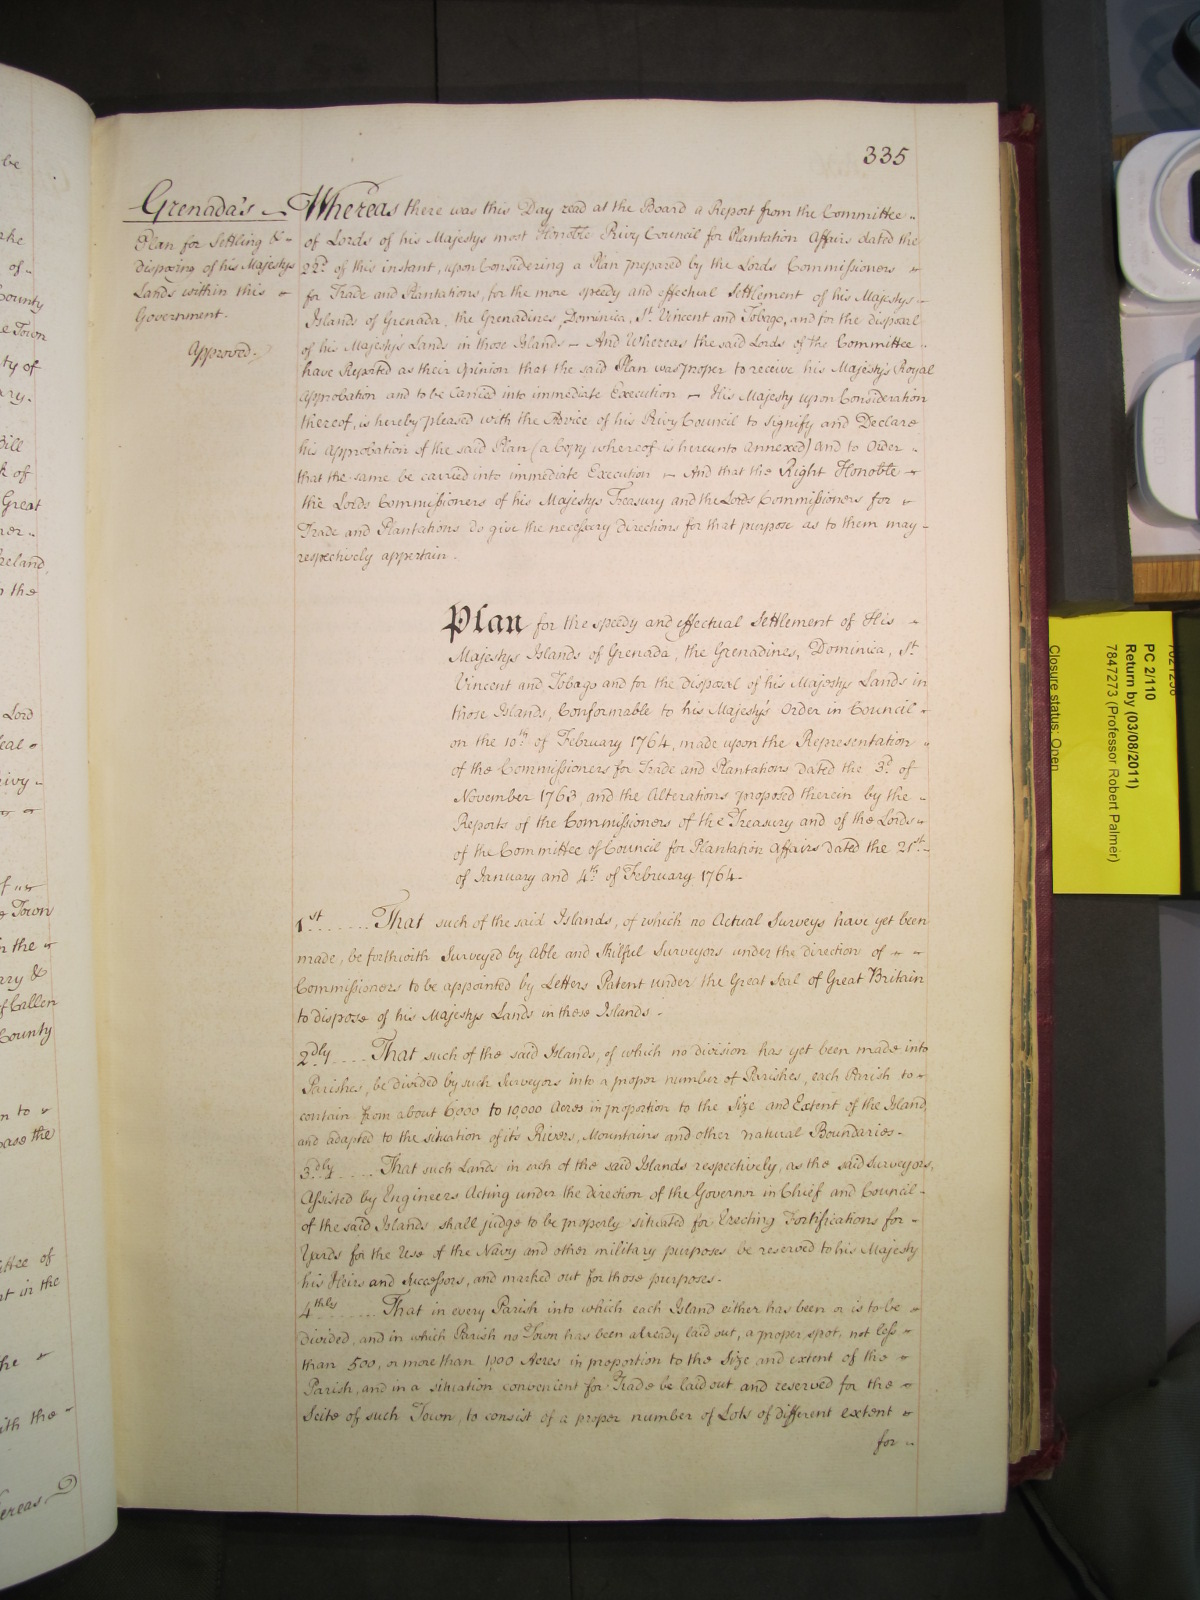 335
Grenada's
Plan for Settling &
Disposing of his Majestys
Lands within this
Government.
Approved.
Whereas there was this Day read at the Board a Report from the Committee
of Lords of his Majestys most Honoble Privy Council for Plantation Affairs dated the
22d of this instant, upon Considering a Plan prepared by the Lords Commissioners
for Trade and Plantations, for the more speedy and effectual Settlement of his Majestys
Islands of Grenada, the Grenadines, Dominica, St Vincent and Tobago, and for the disposal
of his Majestys Lands in those Islands – And Whereas the said Lords of the Committee
have Reported as their Opinion that the said Plan was proper to receive his Majestys Royal
Approbation and to be Carried into immediate Execution – His Majesty upon Consideration
thereof, is hereby pleased with the Advice of his Privy Council to signify and Declare
his Approbation of the said Plan (a Copy whereof is hereunto Annexed) and to Order
that the same be carried into immediate Execution – And that the Right Honoble
the Lords Commissioners of his Majestys Treasury and the Lords Commissioners for
Trade and Plantations do give the necessary Directions for that purpose as to them may
respectively appertain.
Plan for the speedy and effectual Settlement of His
Majestys Islands of Grenada, the Grenadines, Dominica, St
Vincent and Tobago and for the Disposal of his Majestys Lands in
those Islands, Conformable to his Majesty's Order in Council
on the 10th of February 1764, made upon the Representation
of the Commissioners for Trade and Plantations dated the 3d of
November 1763, and the Alterations proposed therein by the
Reports of the Commissioners of the Treasury and of the Lords
of the Committee of Council for Plantation Affairs dated the 21st
of January and 4th of February 1764.
1st ...... That such of the said Islands, of which no Actual Surveys have yet been
made, be forthwith Surveyed by Able and Skilful Surveyors under the direction of
Commissioners to be appointed by Letters Patent under the Great Seal of Great Britain
to dispose of his Majestys Lands in these Islands.
2dly .... That such of the said Islands, of which no Division has yet been made into
Parishes, be divided by such Surveyors into a proper number of Parishes, each Parish to
contain from about 6000 to 10,000 Acres in proportion to the Size and Extent of the Island,
and adapted to the situation of its Rivers, Mountains and other natural Boundaries.
3dly .... That such Lands in each of the said Islands respectively, as the said Surveyors,
Assisted by Engineers Acting under the Direction of the Governor in Chief and Council
of the said Islands shall judge to be properly situated for Erecting Fortifications for
Yards for the Use of the Navy and other military purposes, be reserved to his Majesty
his Heirs and Successors, and marked out for those purposes.
4thly ..... That in every Parish into which each Island either has been or is to be
Divided, and in which Parish no Town has been already laid out, a proper spot, not less
than 500, or more than 1,000 Acres in proportion to the Size and extent of the
Parish, and in a situation convenient for Trade be laid out and reserved for the
Scite of such Town, to consist of a proper number of Lots of different extent
for
PC 2/110
Return by (03/08/2011)
7847273 (Professor Robert Palmer)
Closure status: Open